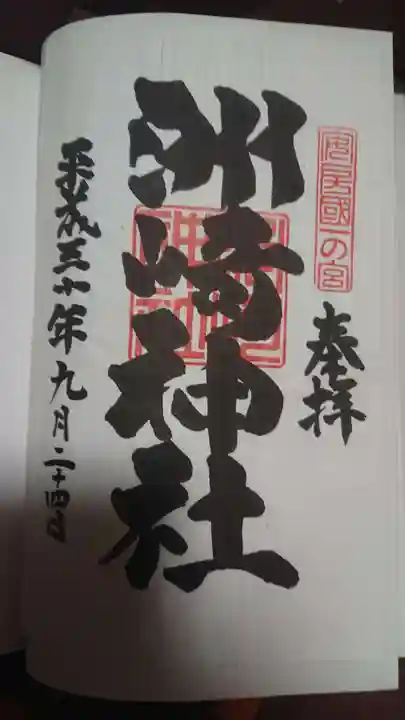 安房國一の宮
奉拝
洲崎神社
平成三十年九月二十四日